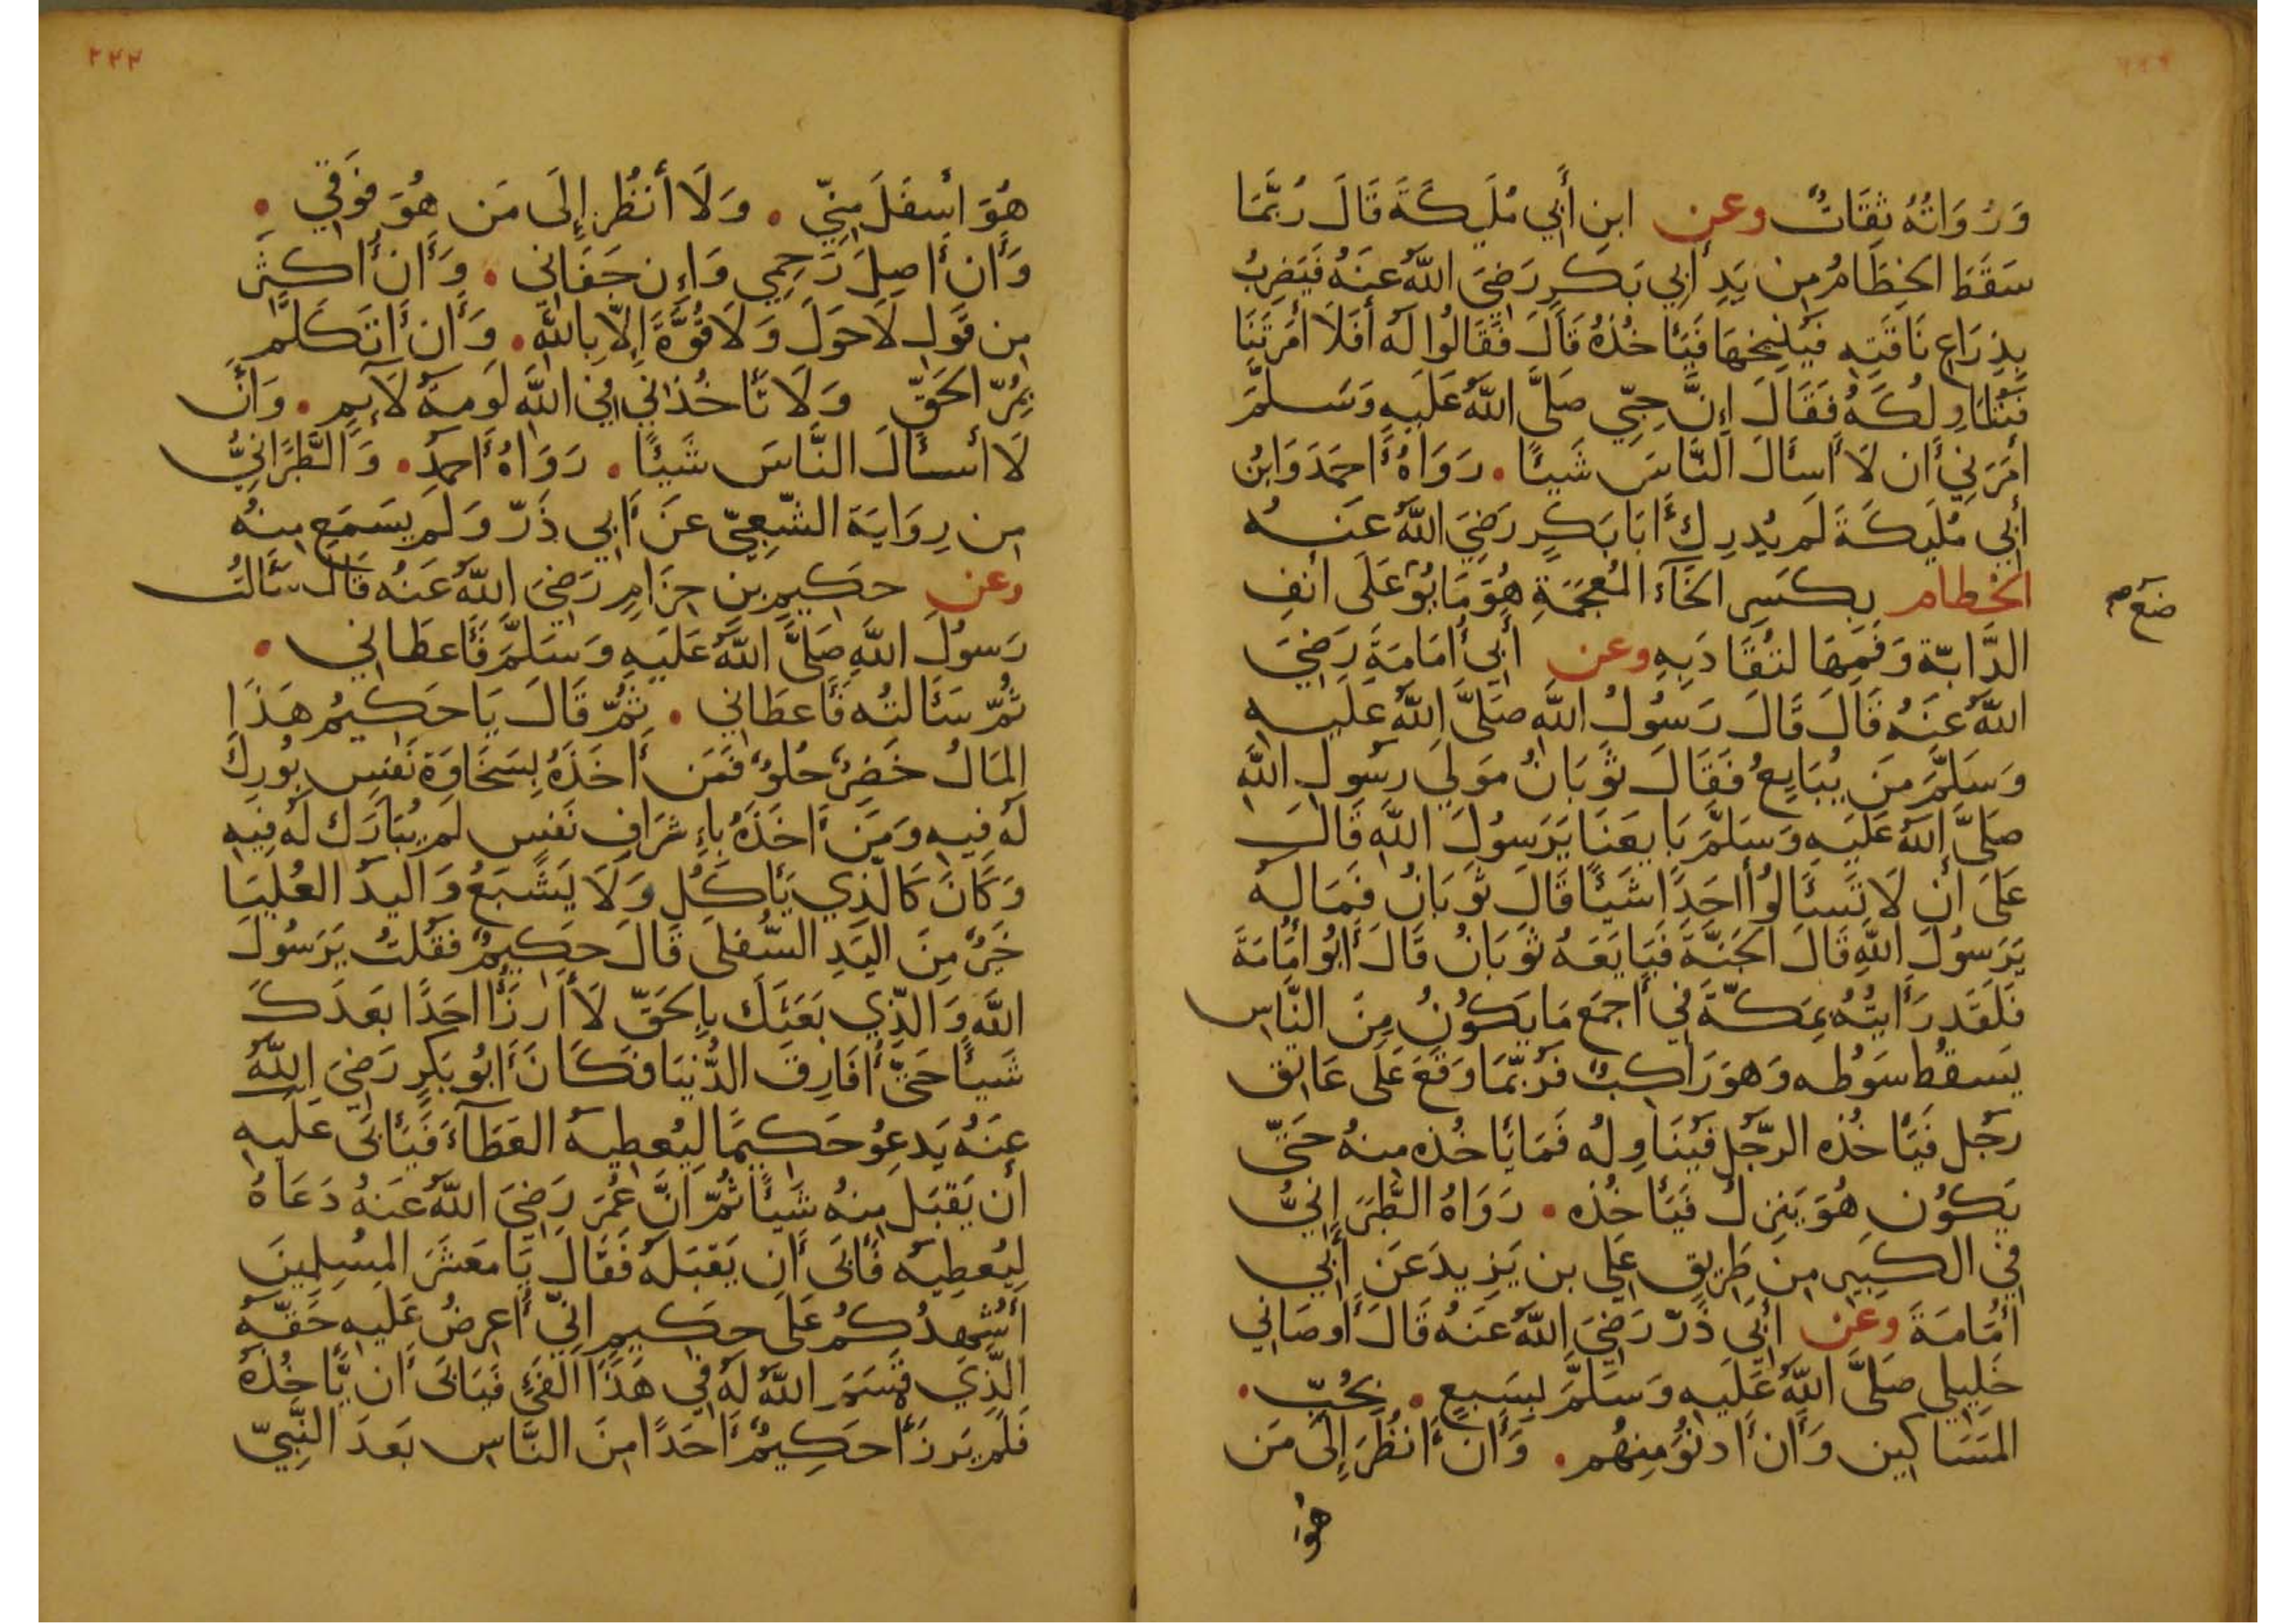 وَرُوَاتُهُ ثِقَاتٌ وعن ابنِ أَبِي مُلَيكَةَ قَالَ رُبَّمَا
سَقَطَ الخِطَامُ مِن يَدِ أَبِي بَكرٍ رَضِيَ اللَّهُ عَنهُ فَيَضرِبُ
بِذِرَاعِ نَاقَتِهِ فَيُنِيخهَا فَيَأخُذُهُ قَالَ فَقَالُوا لَهُ أَفَلَا أَمَرتَنَا
نُنَاوِلُكَهُ فَقَالَ إِنَّ حِبِّي صَلَّى اللَّهُ عَلَيهِ وَسَلَّمَ
أَمَرَنِي أَن لَا أَسأَلَ النَّاسَ شَيئًا . رَوَاهُ أَحمَدُ وَابنُ
أَبِي مُلَيكَةَ لَم يُدرِك أَبَا بَكرٍ رَضِيَ اللَّهُ عَنهُ
الخطام بِكَسرِ الخَآء المُعجَمَةِ هُوَ مَا يُو عَلَى أَنفِ
ضع
الدَّابَّة وَفَمِهَا لتُقَادَ بِهِ وعن أَبِي أُمَامَةَ رَضِيَ
اللَّهُ عَنهُ قَالَ قَالَ رَسُولُ اللَّهِ صَلَّى اللَّهُ عَلَيهِ
وَسَلَّمَ مَن يُبَايِعُ فَقَالَ ثَوبَانُ مَولَى رَسُولِ اللَّهِ
صَلَّى اللَّهُ عَلَيهِ وَسَلَّمَ بَايعنَا يَرَسُولَ اللَّهِ قَالَ
عَلَى أَن لَا تَسئَالُوا أَحَدًا شَيئًا قَالَ ثَوبَانُ فَمَا لَهُ
يَرَسُولَ اللَّهِ قَالَ الجَنَّةَ فَبَايَعَهُ ثَوبَانُ قَالَ أَبُو أُمَامَةَ
فَلَقَد رَأَيتُهُ بِمَكَّةَ فِي أَجمَعِ مَا يَكُونُ مِنَ النَّاسِ
يَسقُط سَوطُه وَهوَ رَاكِبٌ فَرُبَّمَا وَقَعَ عَلَى عَاتِق
رَجُلٍ فَيَأخُذه الرَّجُل فَيُنَاوِلُه فَمَا يَأخُذه مِنهُ حَتَّى
يَكُون هُوَ يَنزِلُ فَيَأخُذه . رَوَاهُ الطَّبَرَانِيُّ
فِي الكَبِيرِ مِن طَرِيقِ عَلِي بن يَزِيدَ عَن أَبِي
أُمَامَةَ وعن أَبِي ذَرّ رَضِيَ اللَّهُ عَنهُ قَالَ أَوصَانِي
خَلِيلِي صَلَّى اللَّهُ عَلَيهِ وَسَلَّمَ بِسَبعٍ . بِحُبِّ .
المَسَاكِين وَأَن أَدنُوَ مِنهُم . وَأَن أَنظُرَ إِلَى مَن
هُوَ
٢٢٢
هُوَ أَسفَلَ مِنِّي . وَلَا أَنظُر إِلَى مَن هُوَ فَوقِي .
وَأَن أَصِلَ رَحِمِي وَإِن جَفَانِي . وَأَن أُكثِرَ
مِن قَولِ لَا حَولَ وَلَا قُوَّةَ إِلَّا بِاللَّهِ . وَأَن أَتَكَلَّم
بِمُرِّ الحَقِّ وَلَا تَأخُذنِي فِي اللَّهِ لَومَةُ لَآئِمٍ . وَأَن
لَا أَسئَالَ النَّاسَ شَيئًا . رَوَاهُ أَحمَد . وَالطَّبَرَانِيُّ
مِن رِوَايَة الشَّعبِيِّ عَن أَبِي ذَرّ وَلَم يَسمَع مِنهُ
وعن حَكِيمِ بنِ حِزَامٍ رَضِيَ اللَّهُ عَنهُ قَالَ سَئَالتُ
رَسُولَ اللَّهِ صَلَّى اللَّهُ عَلَيهِ وَسَلَّمَ فَأَعطَانِي .
ثُمَّ سَئَالتُه فَأَعطَانِي . ثُمَّ قَالَ يَا حَكِيمُ هَذَا
المَالُ خَضِرٌ حُلوٌ فَمَن أَخَذَهُ بِسَخَاوَةِ نَفسٍ بُورِكَ
لَهُ فِيهِ وَمَن أَخَذَهُ بِإِشرَافِ نَفسٍ لَم يُبَارَك لَهُ فِيهِ
وَكَانَ كَالَّذِي يَأكُلُ وَلَا يَشبَعُ وَاليَدُ العُليَا
خَيرٌ مِنَ اليَدِ السُّفلَى قَالَ حَكِيمٌ فَقُلتُ يَرَسُولَ
اللَّهِ وَالَّذِي بَعَثَكَ بِالحَقِّ لَا أَرزَأُ أَحَدًا بَعدَكَ
شَيئًا حَتَّى أُفَارِقَ الدُّنيَا فَكَانَ أَبُو بَكرٍ رَضِيَ اللَّهُ
عَنهُ يَدعُو حَكِيمًا لِيُعطِيهُ العَطَآءَ فَيَأبَى عَلَيهِ
أَن يَقبَلَ مِنهُ شَيئًا ثُمَّ إِنَّ عُمَرَ رَضِيَ اللَّهُ عَنهُ دَعَاهُ
لِيُعطِيَهُ فَأَبَى أَن يَقبَلَهُ فَقَالَ يَا مَعشَرَ المُسلِمِينَ
أُشهِدُكُم عَلَى حَكِيمٍ أَنِّي أَعرِضُ عَلَيهِ حَقَّهُ
الَّذِي قَسَمَ اللَّهُ لَهُ فِي هَذَا الفَيءِ فَيَابَى أَن يَأخُذَهُ
فَلَم يَرزَأ حَكِيمٌ أَحَدًا مِنَ النَّاسِ بَعدَ النَّبِيِّ